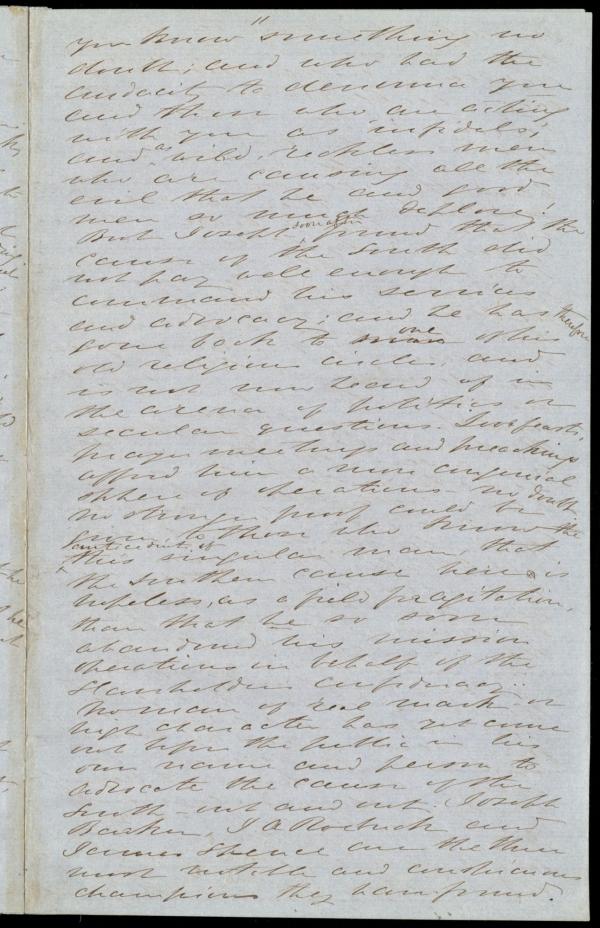 you know "something no
doubt; and who had the
audacity to denounce you
and those who are acting
with you as "infidels;
and, as wild, reckless men
who are causing all the
evil that he and good
men so much deplore!
But Joseph soon after found that the
cause of the South did
not pay well enough to
command his services
and advocacy; and he has therefore
gone back to one of his
old religious circles, and
is not now heard of in
the arena of politics or
secular questions. Love feasts,
prayer meetings and preachings
afford him a more congenial
sphere of operations. No doubt
no stronger proof could be
given to those who know the
antecedents of
this singular man, that
the Southern cause here is
hopeless, as a field for agitation,
than that he so soon
abandoned his mission
operations in behalf of the
Slaveholders confederacy.
No man of real mark or
high character has yet come
out before the public in his
own name and person to
advocate the cause of the
South - out and out. Joseph
Barker, J A Roebuck and
James Spence are the three
most notable and
champions they have found.